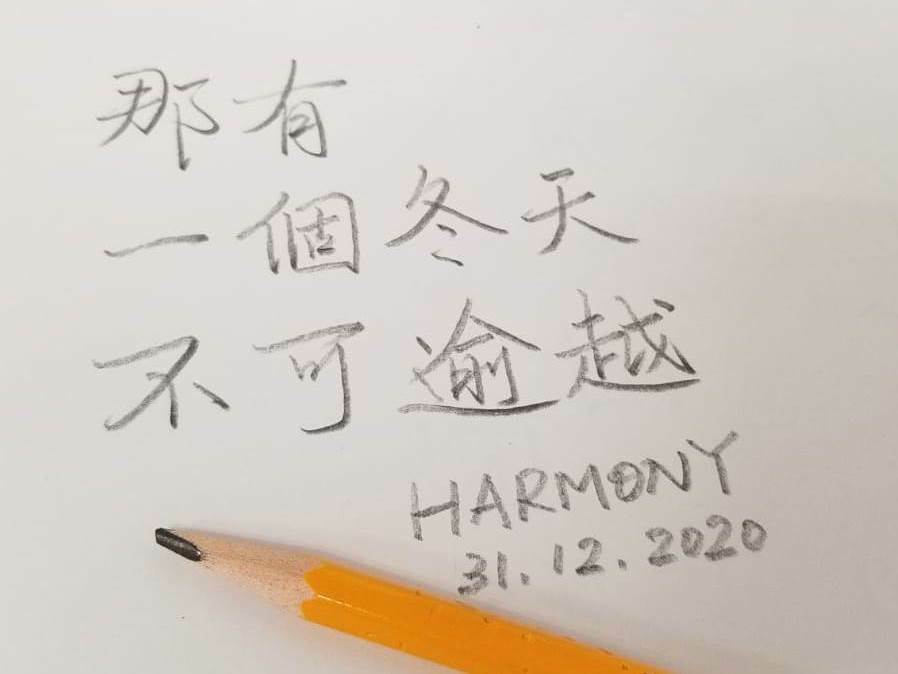 那有
一個冬天
不可逾越
HARMONY
31.12.2020